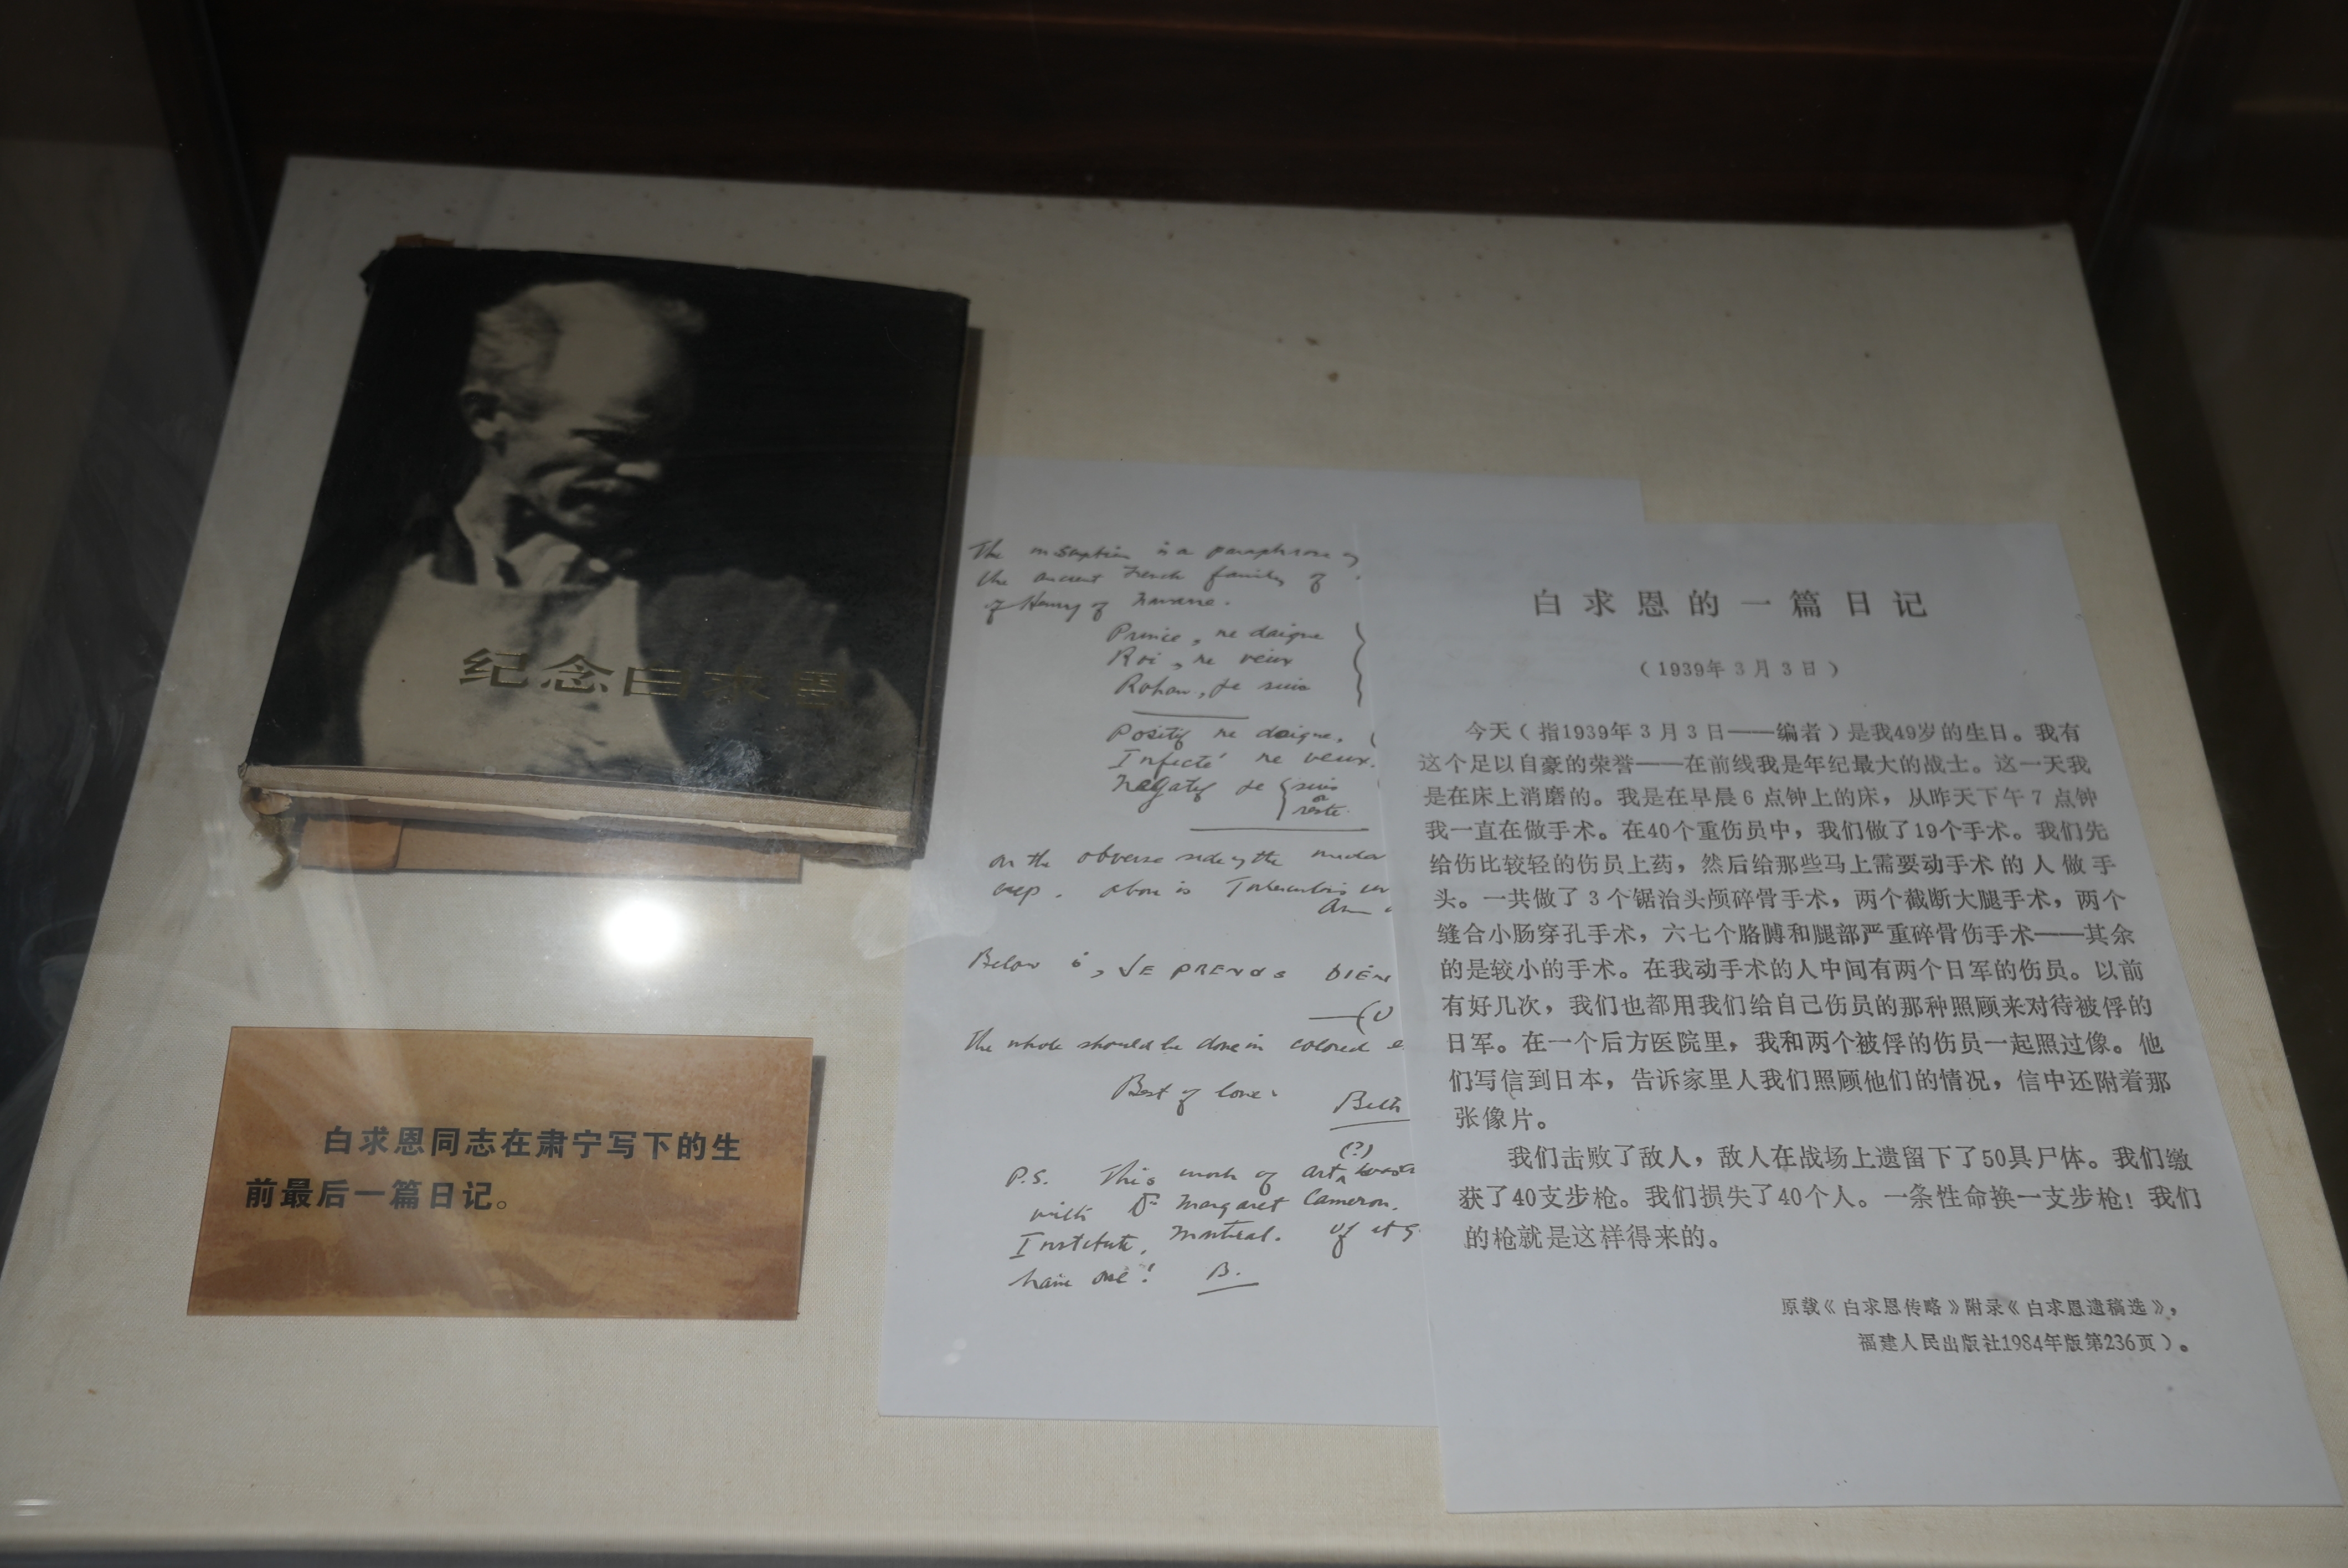 纪念白求恩
白求恩同志在肃宁写下的生
前最后一篇日记。
The inscription is a paraphrase of
the ancient French family of
of Henry of Navarre.
Prince, ne daigne
Roi, ne veux
Rohan, je suis
Positif ne daigne.
Infecté ne veux.
Négatif je suis
or
reste
on the obverse side of the
above is
Below is, JE PRENDS BIEN
The whole should be done in colored
Best of love.
Beth
(?)
P.S. This work of art
with Dr Margaret Cameron.
Institute, Montreal. If
have one! B.
白求恩的一篇日记
（1939年3月3日）
今天（指1939年3月3日——编者）是我49岁的生日。我有
这个足以自豪的荣誉——在前线我是年纪最大的战士。这一天我
是在床上消磨的。我是在早晨6点钟上的床，从昨天下午7点钟
我一直在做手术。在40个重伤员中，我们做了19个手术。我们先
给伤比较轻的伤员上药，然后给那些马上需要动手术的人做手
头。一共做了3个锯治头颅碎骨手术，两个截断大腿手术，两个
缝合小肠穿孔手术，六七个胳膊和腿部严重碎骨伤手术——其余
的是较小的手术。在我动手术的人中间有两个日军的伤员。以前
有好几次，我们也都用我们给自己伤员的那种照顾来对待被俘的
日军。在一个后方医院里，我和两个被俘的伤员一起照过像。他
们写信到日本，告诉家里人我们照顾他们的情况，信中还附着那
张像片。
我们击败了敌人，敌人在战场上遗留下了50具尸体。我们缴
获了40支步枪。我们损失了40个人。一条性命换一支步枪！我们
的枪就是这样得来的。
原载《白求恩传略》附录《白求恩遗稿选》，
福建人民出版社1984年版第236页）。